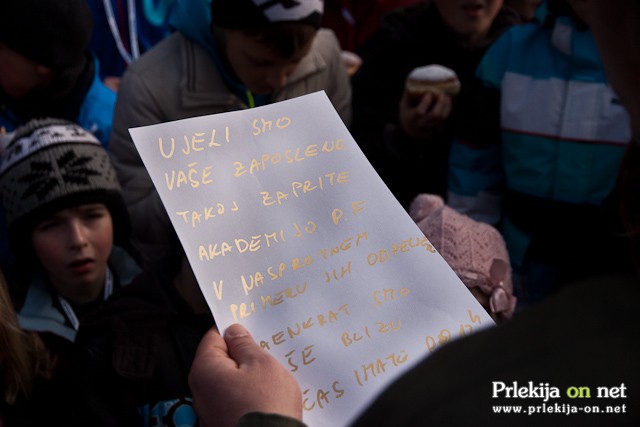 UJELI SMO
VAŠE ZAPOSLENE
TAKOJ ZAPRITE
AKADEMIJO P.F.
V NASPROTNEM
PRIMERU JIH
ENKRAT SMO
BLIZU
ČAS IMATE DO
Prlekija on net
www.prlekija-on.net